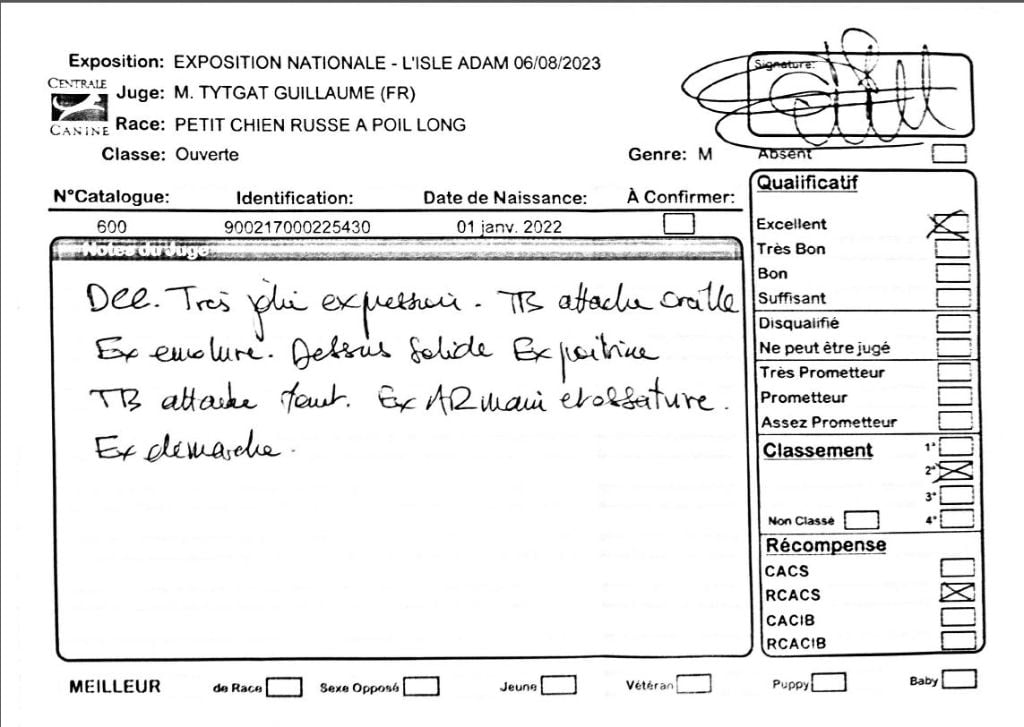 Exposition: EXPOSITION NATIONALE - L'ISLE ADAM 06/08/2023
CENTRALE CANINE
Juge: M. TYTGAT GUILLAUME (FR)
Race: PETIT CHIEN RUSSE A POIL LONG
Classe: Ouverte Genre: M
Signature:
Absent
N°Catalogue: Identification: Date de Naissance: À Confirmer:
600 900217000225430 01 janv. 2022
Notes du Juge
Très jolie expression. TB attache oreille
Ex encolure. Dessus solide Ex poitrine
TB attache fouet. Ex et ossature.
Ex démarche.
Qualificatif
Excellent
Très Bon
Bon
Suffisant
Disqualifié
Ne peut être jugé
Très Prometteur
Prometteur
Assez Prometteur
Classement 1°
2°
3°
Non Classé 4°
Récompense
CACS
RCACS
CACIB
RCACIB
MEILLEUR de Race Sexe Opposé Jeune Vétéran Puppy Baby